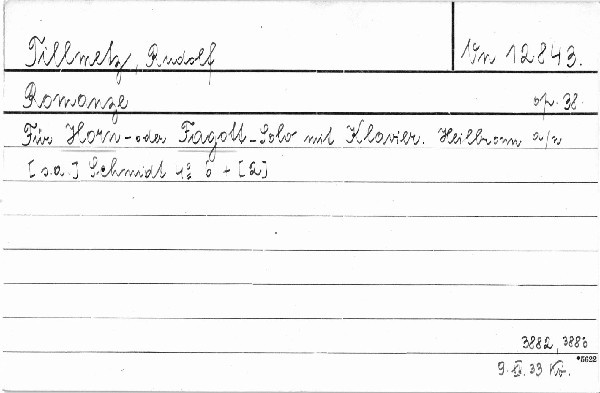 Tillmetz, Rudolf
Vn 12843.
Romanze op. 38.
Für Horn- oder Fagott-Solo mit Klavier. Heilbronn a/n
[s.a.] Schmidt 4º 6 + [2]
3882, 3883
*5622
9. XI. 33